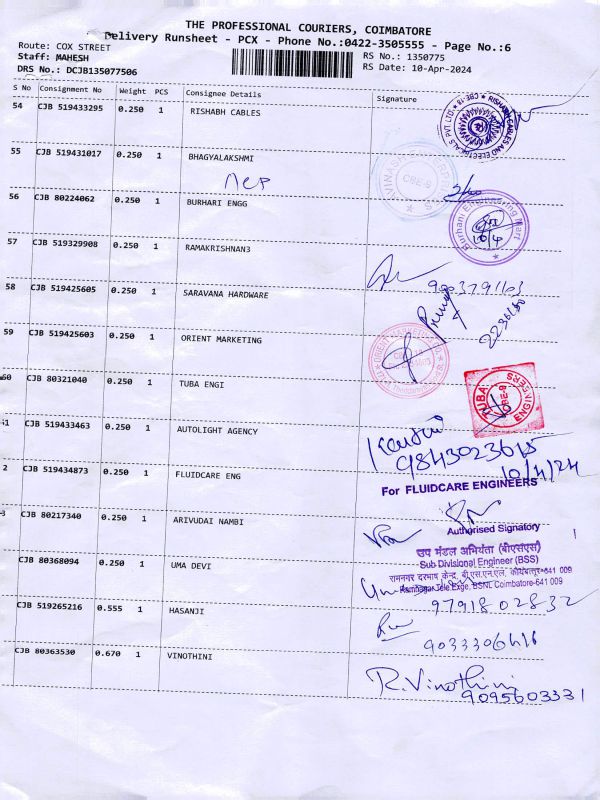 THE PROFESSIONAL COURIERS, COIMBATORE
Delivery Runsheet - PCX - Phone No.:0422-3505555 - Page No.:6
Route: COX STREET
Staff: MAHESH
DRS No.: DCJB135077506
RS No.: 1350775
RS Date: 10-Apr-2024
S No Consignment No Weight PCS Consignee Details Signature
54 CJB 519433295 0.250 1 RISHABH CABLES
RISHABH CABLES AND ELECTRICALS PVT LTD
CBE-18
55 CJB 519431017 0.250 1 BHAGYALAKSHMI
CBE-9
56 CJB 80224062 0.250 1 BURHARI ENGG
Burhani Engineering Mart
10/4
57 CJB 519329908 0.250 1 RAMAKRISHNAN3
9003791103
58 CJB 519425605 0.250 1 SARAVANA HARDWARE
59 CJB 519425603 0.250 1 ORIENT MARKETING
60 CJB 80321040 0.250 1 TUBA ENGI
TUBA ENGINEERS
CBE-9
61 CJB 519433463 0.250 1 AUTOLIGHT AGENCY
9843023615
10/4/24
2 CJB 519434873 0.250 1 FLUIDCARE ENG
For FLUIDCARE ENGINEERS
Authorised Signatory
3 CJB 80217340 0.250 1 ARIVUDAI NAMBI
उप मंडल अभियंता (बीएसएस)
Sub Divisional Engineer (BSS)
रामनगर दूरभाष केन्द्र, बी.एस.एन.एल, कोयंबत्तूर-641 009
Ramnagar Tele.Exge, BSNL Coimbatore-641 009
CJB 80368094 0.250 1 UMA DEVI
9791802832
CJB 519265216 0.555 1 HASANJI
9033306416
CJB 80363530 0.670 1 VINOTHINI
R.Vinothini
9095603331